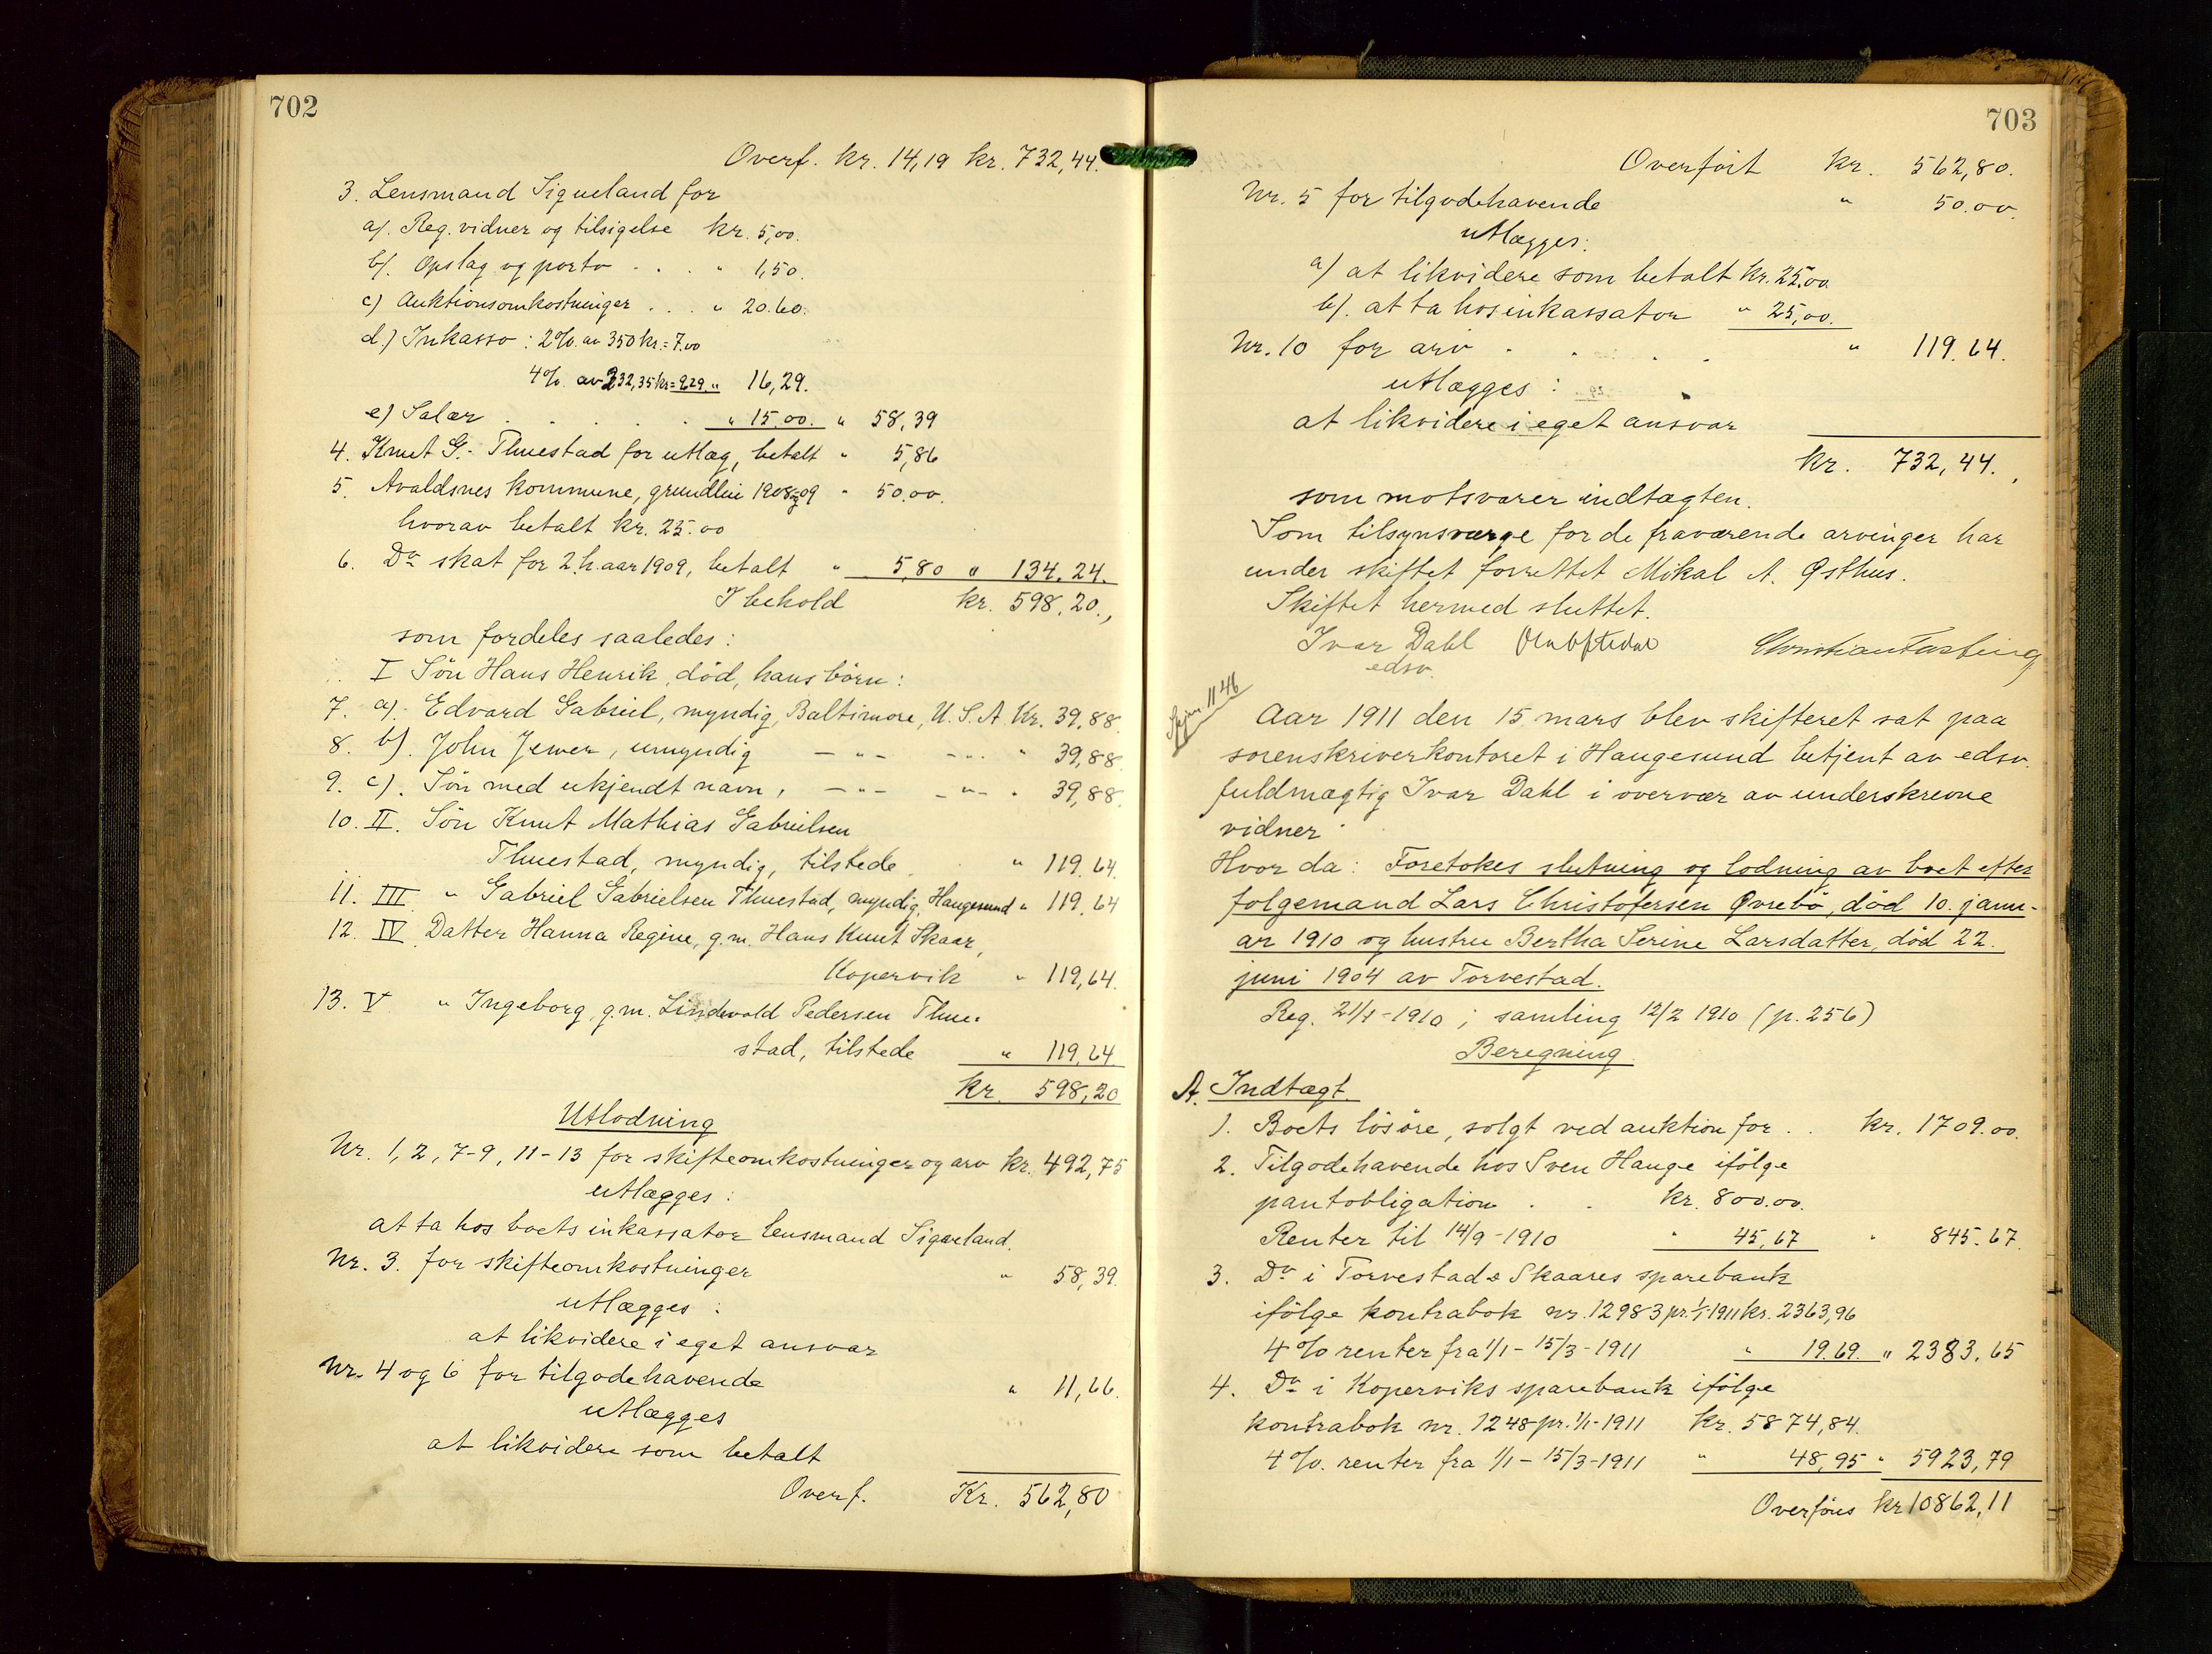 702
Overf. kr. 14,19 kr. 732,44.
3. Lensmand Sigueland for
a). Reg. vidner og tilsigelse kr. 5,00.
b). Opslag og porto . . . " 1,50.
c) Auktionsomkostninger . . . " 20.60.
d.) Inkasso : 2% av 350 kr. = 7.00
4% av 232,35 kr = 9.29 " 16,29.
e) Salær . . . . . " 15.00. " 58,39
4. Knut G. Thuestad for utlæg, betalt " 5,86
5. Avaldsnes kommune, grundleie 1908 og 09 " 50.00.
hvorav betalt kr. 25.00
6. Do skat for 2. h. aar 1909, betalt " 5,80 " 134.24.
I behold kr. 598.20.,
som fordeles saaledes:
I Søn Hans Henrik, død, hans børn:
7. a). Edvard Gabriel, myndig, Baltimore, U.S.A. Kr. 39,88.
8. b). John Jewer, umyndig — " — — " — " 39,88.
9. c). Søn med ukjendt navn, — " — — " — " 39,88.
10. II. Søn Knut Mathias Gabrielsen
Thuestad, myndig, tilstede. " 119.64.
11. III " Gabriel Gabrielsen Thuestad, myndig, Haugesund " 119.64
12. IV Datter Hanna Regine, g.m. Hans Knut Skaar,
Kopervik " 119,64.
13. V " Ingeborg, g.m. Lindevald Pedersen Thue-
stad, tilstede " 119,64.
Kr. 598,20
Utlodning
Nr. 1, 2, 7-9, 11-13 for skifteomkostninger og arv kr. 492,75
utlægges:
at ta hos boets inkassator lensmand Sigveland.
Nr. 3. for skifteomkostninger " 58,39.
utlægges:
at likvidere i eget ansvar
Nr. 4 og 6 for tilgodehavende " 11,66.
utlægges
at likvidere som betalt
Overf. Kr. 562,80
703
Overført kr. 562,80.
Nr. 5 for tilgodehavende " 50.00.
utlægges:
a) at likvidere som betalt kr. 25.00
b). at ta hos inkassator " 25,00.
Nr. 10 for arv . . . . " 119.64.
utlægges:
at likvidere i eget ansvar
kr. 732,44.,
som motsvarer indtægten.
Som tilsynsværge for de fraværende arvinger har
under skiftet forrettet Mikal A. Østhus.
Skiftet hermed sluttet.
Ivar Dahl Christian Fasting
edsv.
1146
Aar 1911 den 15. mars blev skifteret sat paa
sorenskriverkontoret i Haugesund betjent av edsv.
fuldmægtig Ivar Dahl i overvær av underskrevne
vidner
Hvor da: Foretokes slutning og lodning av boet efter
folgemand Lars Christofersen Øvrebø, død 10. janu-
ar 1910 og hustru Bertha Serine Larsdatter, død 22.
juni 1904 av Torvestad.
Reg. 21/1-1910; samling 12/2 1910 (p. 256)
Beregning.
A. Indtægt.
1. Boets løsøre, solgt ved auktion for . . kr. 1709.00.
2. Tilgodehavende hos Sven Hauge ifølge
pantobligation . . kr. 800.00.
Renter til 14/9-1910 " 45,67 " 845.67.
3. Do i Torvestad & Skaares sparebank
ifølge kontrabok nr. 12983 pr. 1/1 1911 kr. 2363,96
4% renter fra 1/1 - 15/3 - 1911 " 19.69. " 2383.65
4. Do i Koperviks sparebank ifølge
kontrabok nr. 1248 pr. 1/1-1911 kr. 5874,84.
4%. renter fra 1/1 - 15/3-1911 " 48,95 " 5923,79
Overføres kr 10862,11